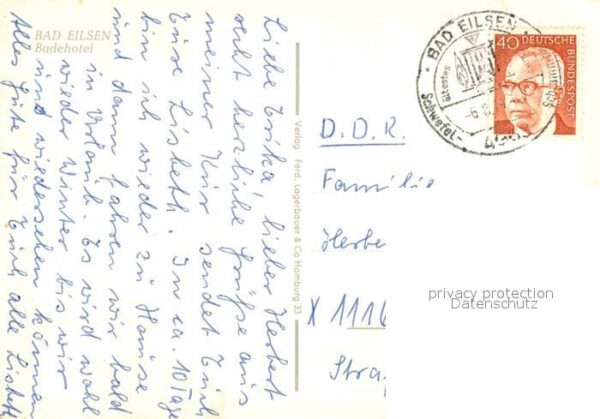 BAD EILSEN
Badehotel
Liebe Erika lieber Herbert
recht herzliche Grüße aus
meiner Kur sendet Euch
Eure Lisbeth. In ca. 10 Tage
bin ich wieder zu Hause
und dann fahren wir bald
in Urlaub. Es wird wohl
wieder Winter bis wir
uns wiedersehen können
Alles Gute für Euch alle Lisbeth
Verlag Ferd. Lagerbauer & Co Hamburg 33
BAD EILSEN
Schwefel-
40 DEUTSCHE
BUNDESPOST
D.D.R.
Familie
Herbe
X 1116
Stra
privacy protection
Datenschutz